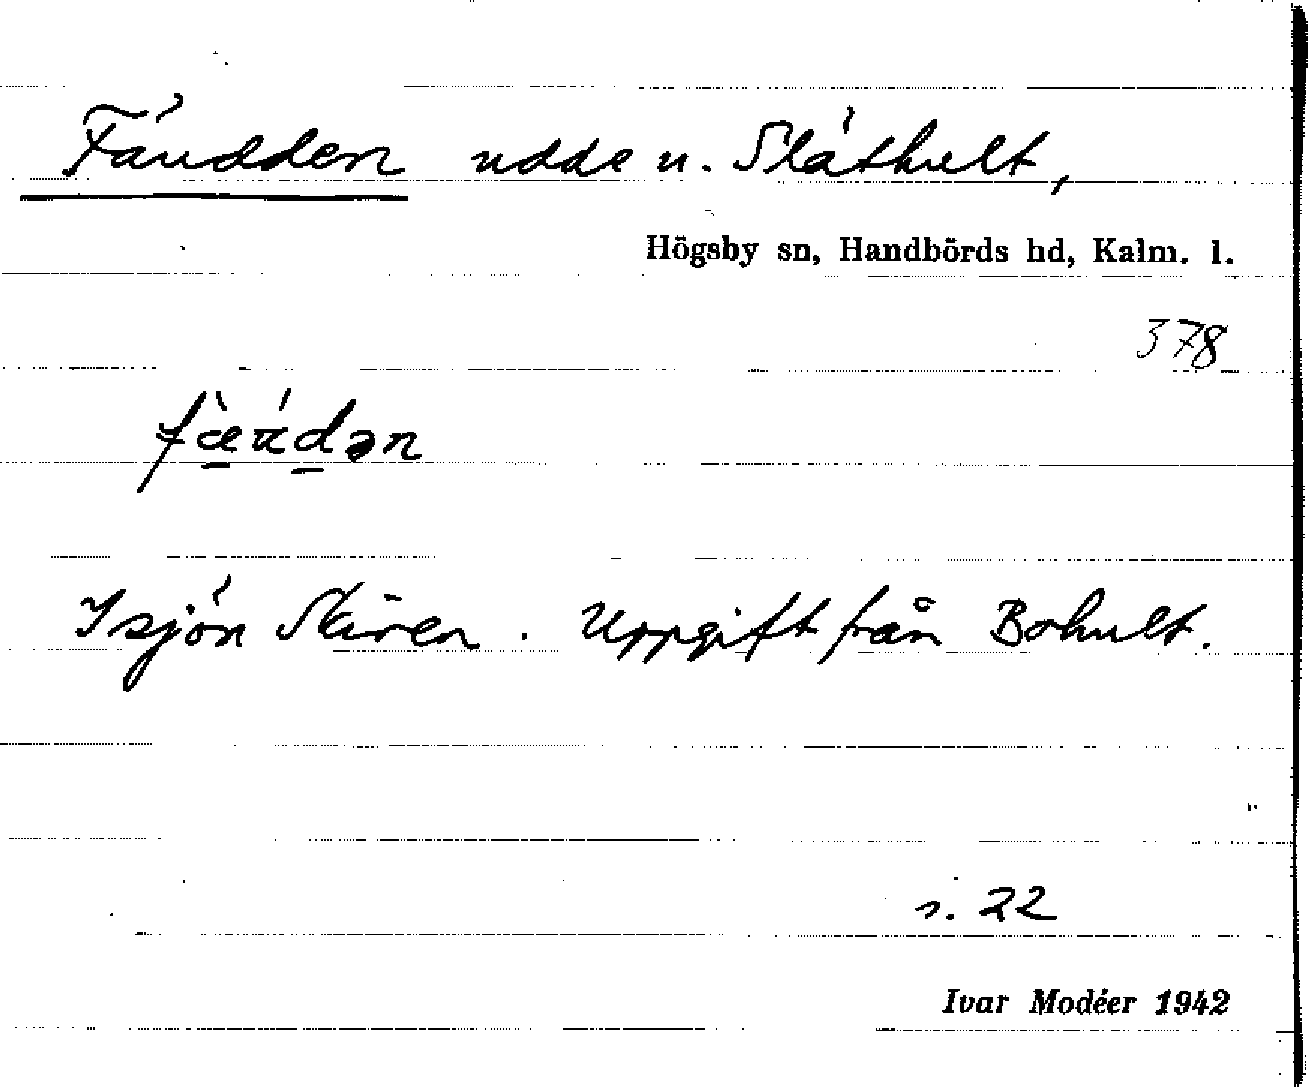 Fäudden udde n. Släthult,
Högsby sn, Handbörds hd, Kalm. l.
378
fæ̀údən
I sjön Skiren. Uppgift från Bohult.
s. 22
Ivar Modéer 1942